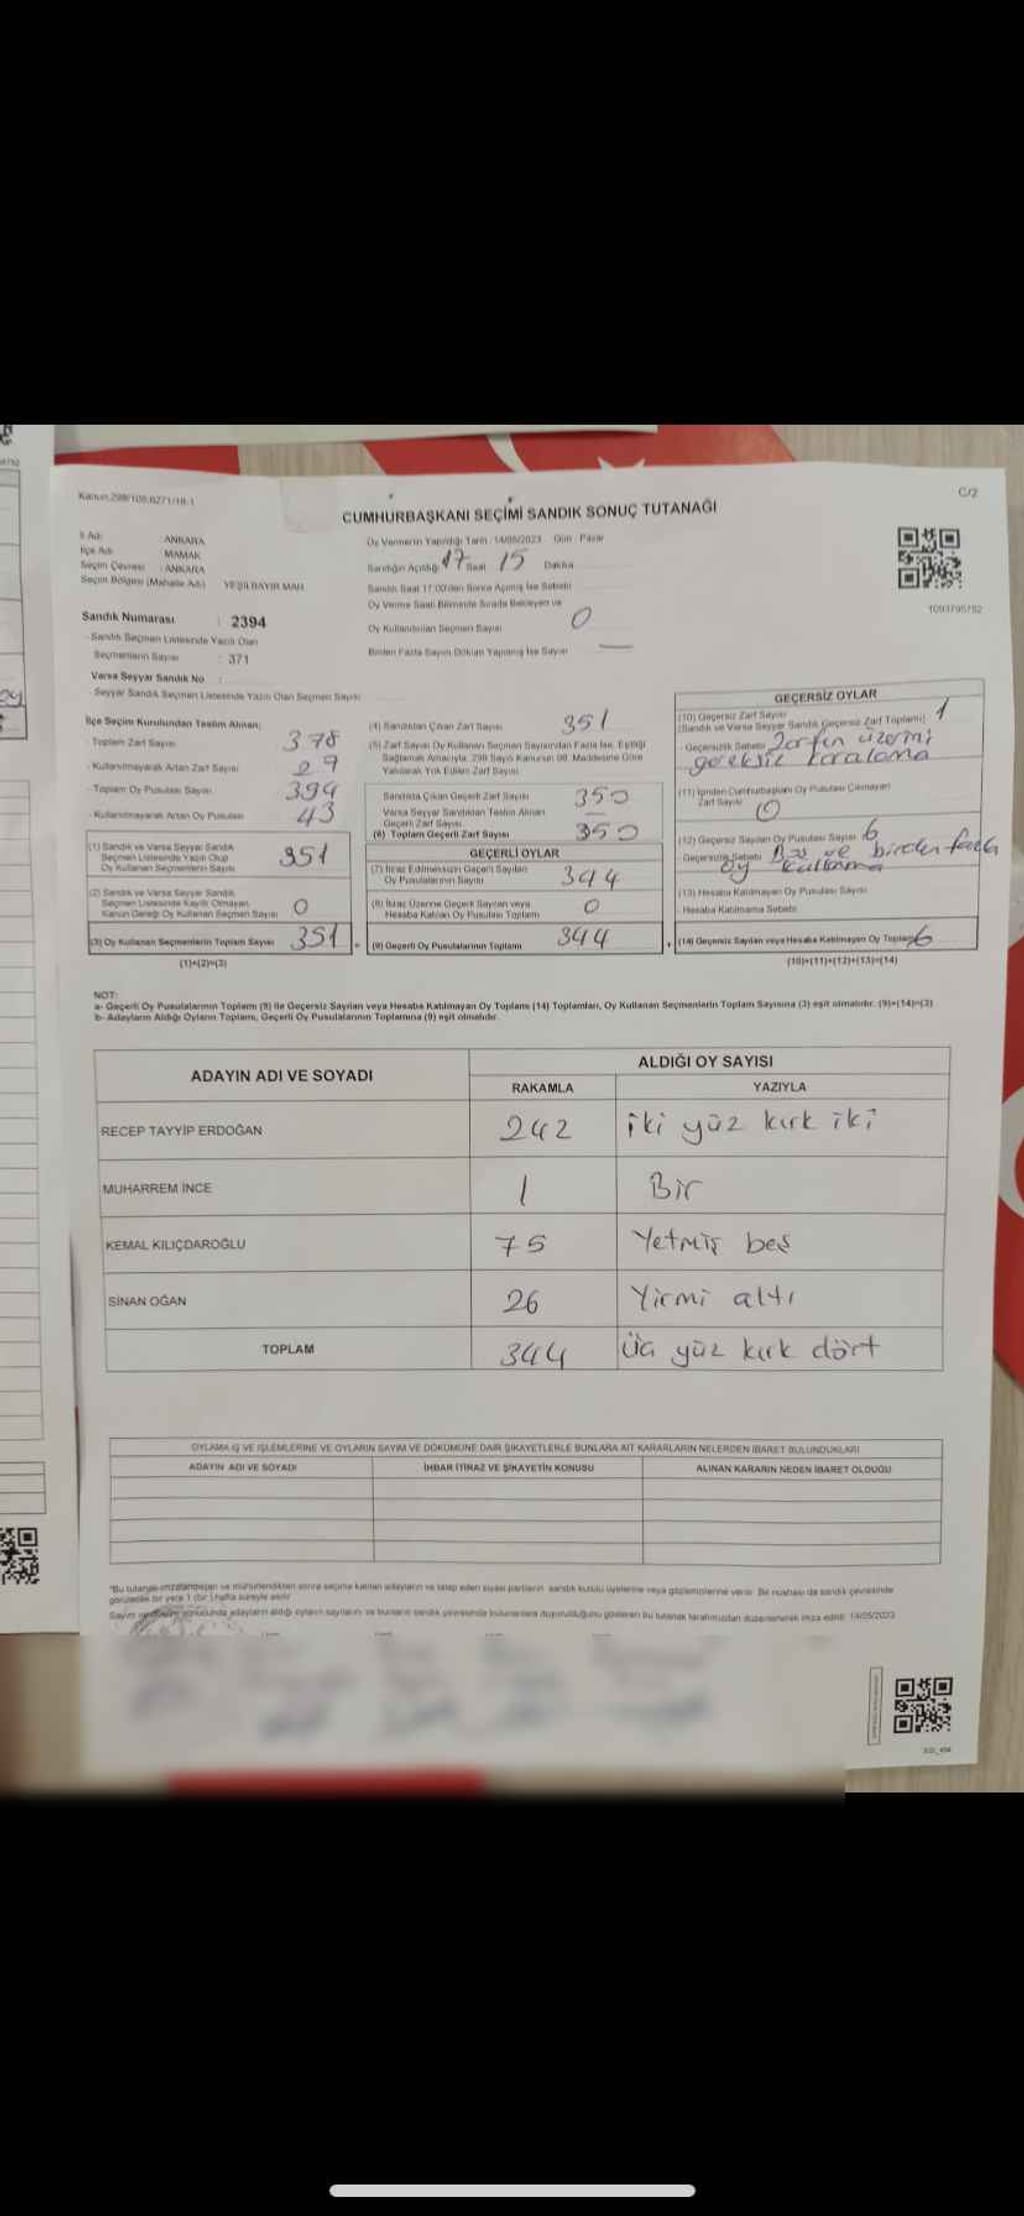 Kanun:298/105,6271/18-1
C/2
CUMHURBAŞKANI SEÇİMİ SANDIK SONUÇ TUTANAĞI
İl Adı : ANKARA
İlçe Adı : MAMAK
Seçim Çevresi : ANKARA
Seçim Bölgesi (Mahalle Adı) YEŞİLBAYIR MAH.
Oy Vermenin Yapıldığı Tarih : 14/05/2023 Gün : Pazar
Sandığın Açıldığı 17 Saat 15 Dakika
Sandık Saat 17:00'den Sonra Açılmış İse Sebebi
Oy Verme Saati Bitiminde Sırada Bekleyen ve
Oy Kullandırılan Seçmen Sayısı 0
Birden Fazla Sayım Döküm Yapılmış İse Sayısı —
1093795752
Sandık Numarası : 2394
- Sandık Seçmen Listesinde Yazılı Olan
Seçmenlerin Sayısı : 371
Varsa Seyyar Sandık No :
- Seyyar Sandık Seçmen Listesinde Yazılı Olan Seçmen Sayısı
İlçe Seçim Kurulundan Teslim Alınan;
- Toplam Zarf Sayısı 378
- Kullanılmayarak Artan Zarf Sayısı 29
- Toplam Oy Pusulası Sayısı 394
- Kullanılmayarak Artan Oy Pusulası 43
(1) Sandık ve Varsa Seyyar Sandık
Seçmen Listesinde Yazılı Olup
Oy Kullanan Seçmenlerin Sayısı 351
(2) Sandık ve Varsa Seyyar Sandık
Seçmen Listesinde Kayıtlı Olmayan
Kanun Gereği Oy Kullanan Seçmen Sayısı 0
(3) Oy Kullanan Seçmenlerin Toplam Sayısı 351
(1)+(2)=(3)
(4) Sandıktan Çıkan Zarf Sayısı 351
(5) Zarf Sayısı Oy Kullanan Seçmen Sayısından Fazla İse, Eşitliği
Sağlamak Amacıyla, 298 Sayılı Kanunun 98. Maddesine Göre
Yakılarak Yok Edilen Zarf Sayısı
Sandıkta Çıkan Geçerli Zarf Sayısı 350
Varsa Seyyar Sandıktan Teslim Alınan
Geçerli Zarf Sayısı —
(6) Toplam Geçerli Zarf Sayısı 350
GEÇERLİ OYLAR
(7) İtiraz Edilmeksizin Geçerli Sayılan
Oy Pusulalarının Sayısı 344
(8) İtiraz Üzerine Geçerli Sayılan veya
Hesaba Katılan Oy Pusulası Toplamı 0
(9) Geçerli Oy Pusulalarının Toplamı 344
GEÇERSİZ OYLAR
(10) Geçersiz Zarf Sayısı
(Sandık ve Varsa Seyyar Sandık Geçersiz Zarf Toplamı) 1
- Geçersizlik Sebebi Zarfın üzerini
gereksiz karalama
(11) İçinden Cumhurbaşkanı Oy Pusulası Çıkmayan
Zarf Sayısı 0
(12) Geçersiz Sayılan Oy Pusulası Sayısı 6
Geçersizlik Sebebi Boş ve birden fazla
oy kullanma
(13) Hesaba Katılmayan Oy Pusulası Sayısı
- Hesaba Katılmama Sebebi
(14) Geçersiz Sayılan veya Hesaba Katılmayan Oy Toplamı 6
(10)+(11)+(12)+(13)=(14)
NOT:
a- Geçerli Oy Pusulalarının Toplamı (9) ile Geçersiz Sayılan veya Hesaba Katılmayan Oy Toplamı (14) Toplamları, Oy Kullanan Seçmenlerin Toplam Sayısına (3) eşit olmalıdır. (9)+(14)=(3)
b- Adayların Aldığı Oyların Toplamı, Geçerli Oy Pusulalarının Toplamına (9) eşit olmalıdır.
ADAYIN ADI VE SOYADI
ALDIĞI OY SAYISI
RAKAMLA YAZIYLA
RECEP TAYYİP ERDOĞAN 242 iki yüz kırk iki
MUHARREM İNCE 1 Bir
KEMAL KILIÇDAROĞLU 75 Yetmiş beş
SİNAN OĞAN 26 Yirmi altı
TOPLAM 344 üç yüz kırk dört
OYLAMA İŞ VE İŞLEMLERİNE VE OYLARIN SAYIM VE DÖKÜMÜNE DAİR ŞİKAYETLERLE BUNLARA AİT KARARLARIN NELERDEN İBARET BULUNDUKLARI
ADAYIN ADI VE SOYADI İHBAR İTİRAZ VE ŞİKAYETİN KONUSU ALINAN KARARIN NEDEN İBARET OLDUĞU
"Bu tutanak imzalandıktan ve mühürlendikten sonra seçime katılan adayların ve talep eden siyasi partilerin sandık kurulu üyelerine veya gözlemcilerine verilir. Bir nüshası da sandık çevresinde
görülebilir bir yere 1 (bir) hafta süreyle asılır.
Sayım ve döküm sonucunda adayların aldığı oyların sayılarını ve bunların sandık çevresinde bulunanlara duyurulduğunu gösteren bu tutanak tarafımızdan düzenlenerek imza edildi. 14/05/2023